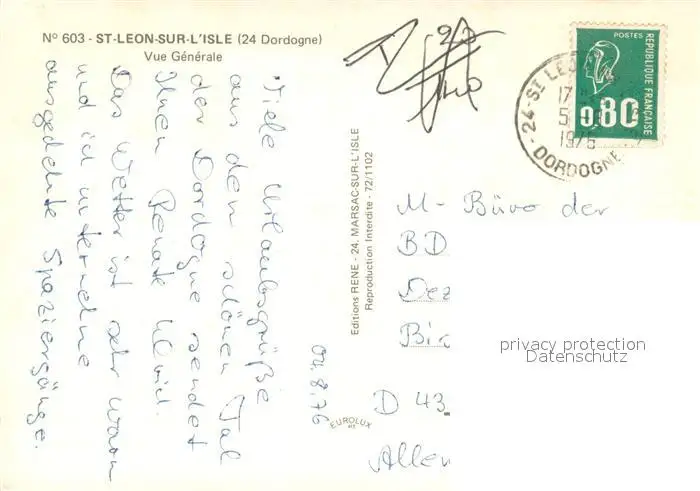 N° 603 - ST-LEON-SUR-L'ISLE (24 Dordogne)
Vue Générale
Viele Urlaubsgrüße
aus dem schönen Tal
der Dordogne sendet
Ihnen Renate
Das Wetter ist sehr warm
und ich unternehme
ausgedehnte Spaziergänge.
04.8.76
Editions RENE - 24. MARSAC-SUR-L'ISLE
Reproduction Interdite - 72/1102
EUROLUX
POSTES
RÉPUBLIQUE FRANÇAISE
0,80
24-ST LEON
17
5
1976
DORDOGNE
M- Büro der
BD
Dez
Bir
D 43
Allem
privacy protection
Datenschutz